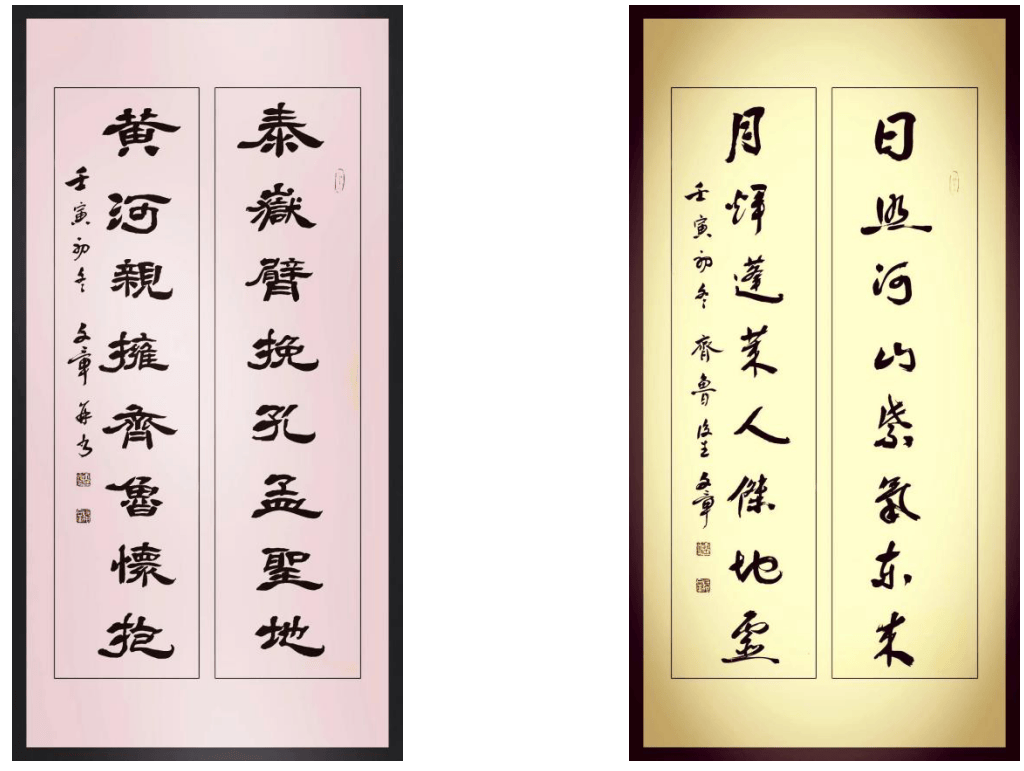 泰嶽臂挽孔孟聖地
黄河親擁齊魯懷抱
壬寅初冬 文章并书
日照河山紫氣东来
月輝蓬莱人傑地靈
壬寅初冬 齊魯後生 文章